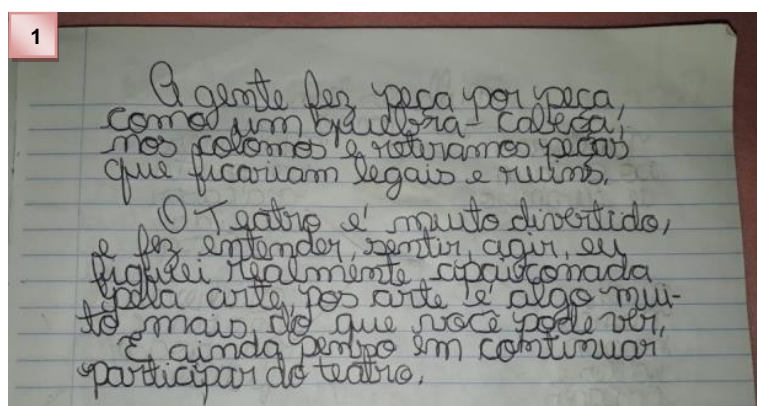 1
A gente fez peça por peça,
como um quebra-cabeça,
nos colomos e retiramos peças
que ficariam legais e ruins.
O Teatro é muito divertido,
e fez entender, sentir, agir, eu
fiquei realmente apaixonada
pela arte, pos arte é algo mui-
to mais do que você pode ver,
E ainda penso em continuar
participar do teatro.